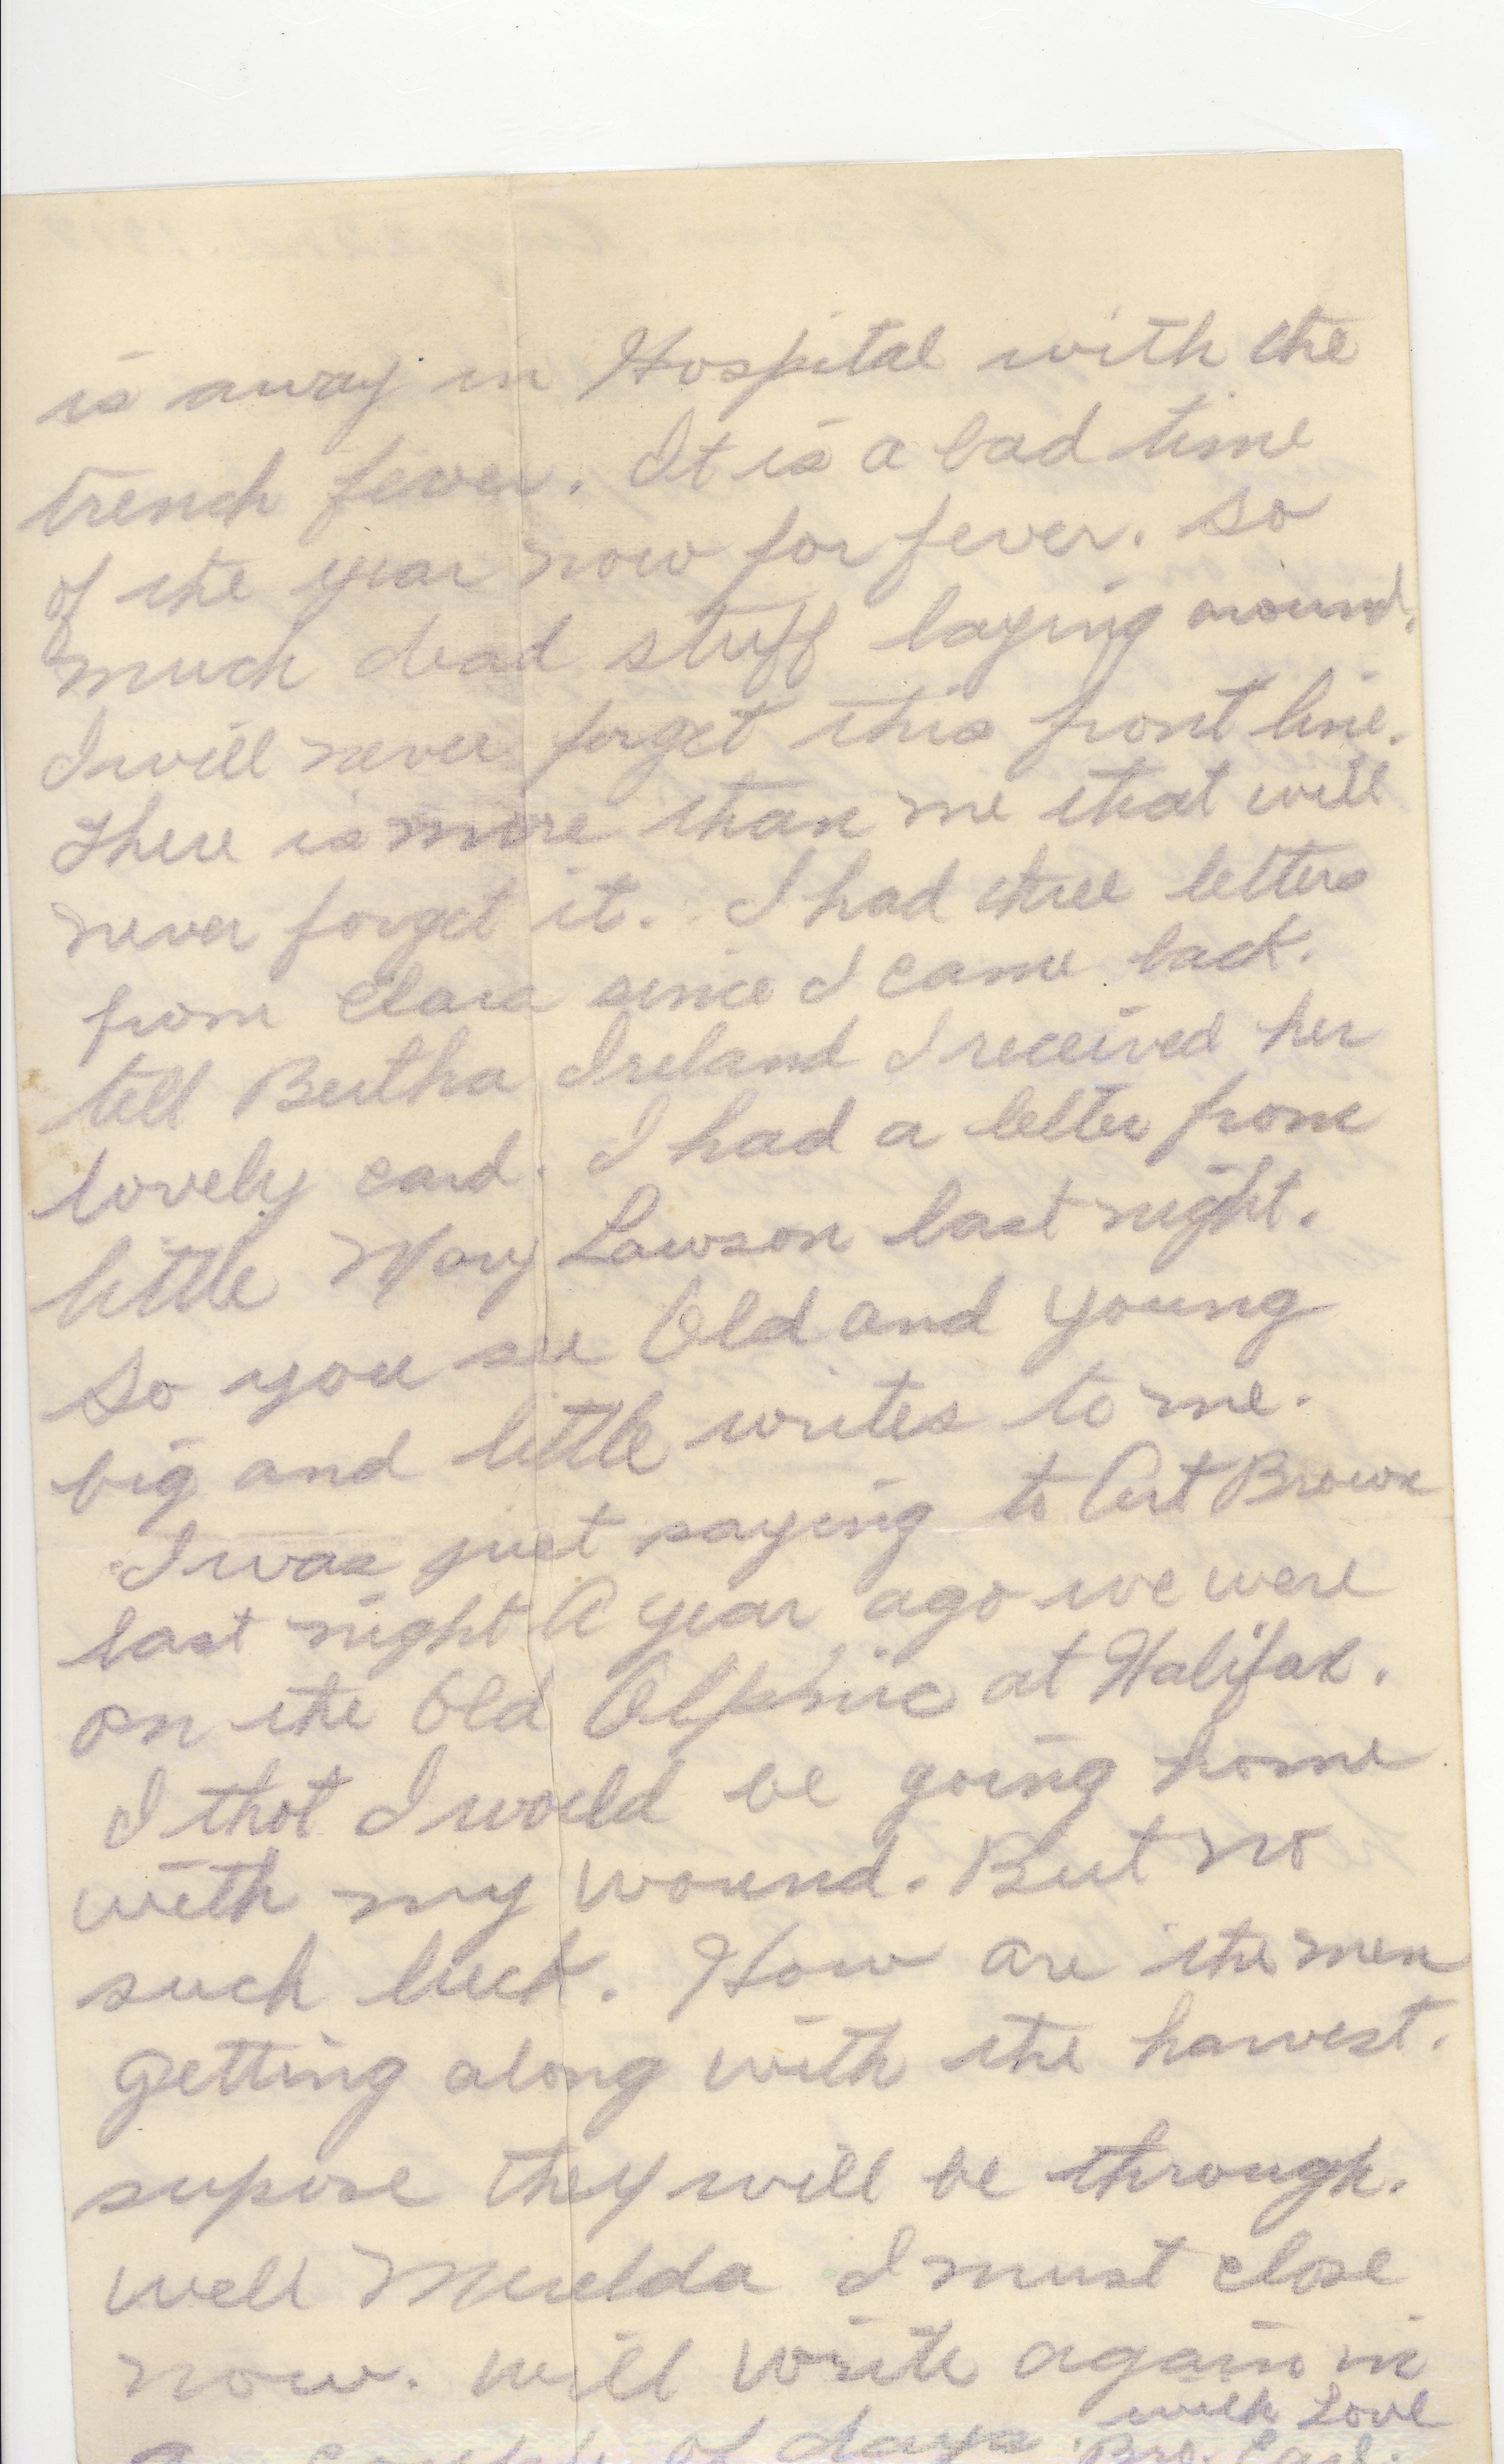 is away in Hospital with the
trench fever. It is a bad time
of the year now for fever. so
much dead stuff laying around.
I will never forget this front line.
There is more than me that will
never forget it. I had three letters
from Clara since I came back.
tell Bertha Ireland I received her
lovely card. I had a letter from
little Mary Lawson last night.
So you see Old and young
big and little writes to me.
I was just saying to Art Brown
last night A year ago we were
on the Old Olphic at Halifax.
I thot I would be going home
with my wound. But no
such luck. How are the men
getting along with the harvest.
supose they will be through.
well Murlda I must close
now. will write again in
a couple of days. with Love
Bro. Carl.